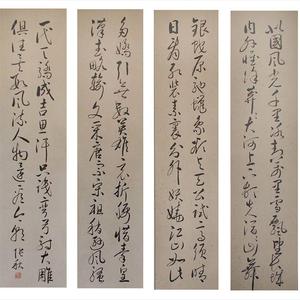 北國風光千里冰封萬里雪飄望長城
內外惟餘莽莽大河上下頓失滔滔山舞
銀蛇原馳蠟象欲與天公試比高須晴
日看紅裝素裹分外妖嬈江山如此
多嬌引無數英雄競折腰惜秦皇
漢武略輸文采唐宗宋祖稍遜風騷
一代天驕成吉思汗只識彎弓射大雕
俱往矣數風流人物還看今朝